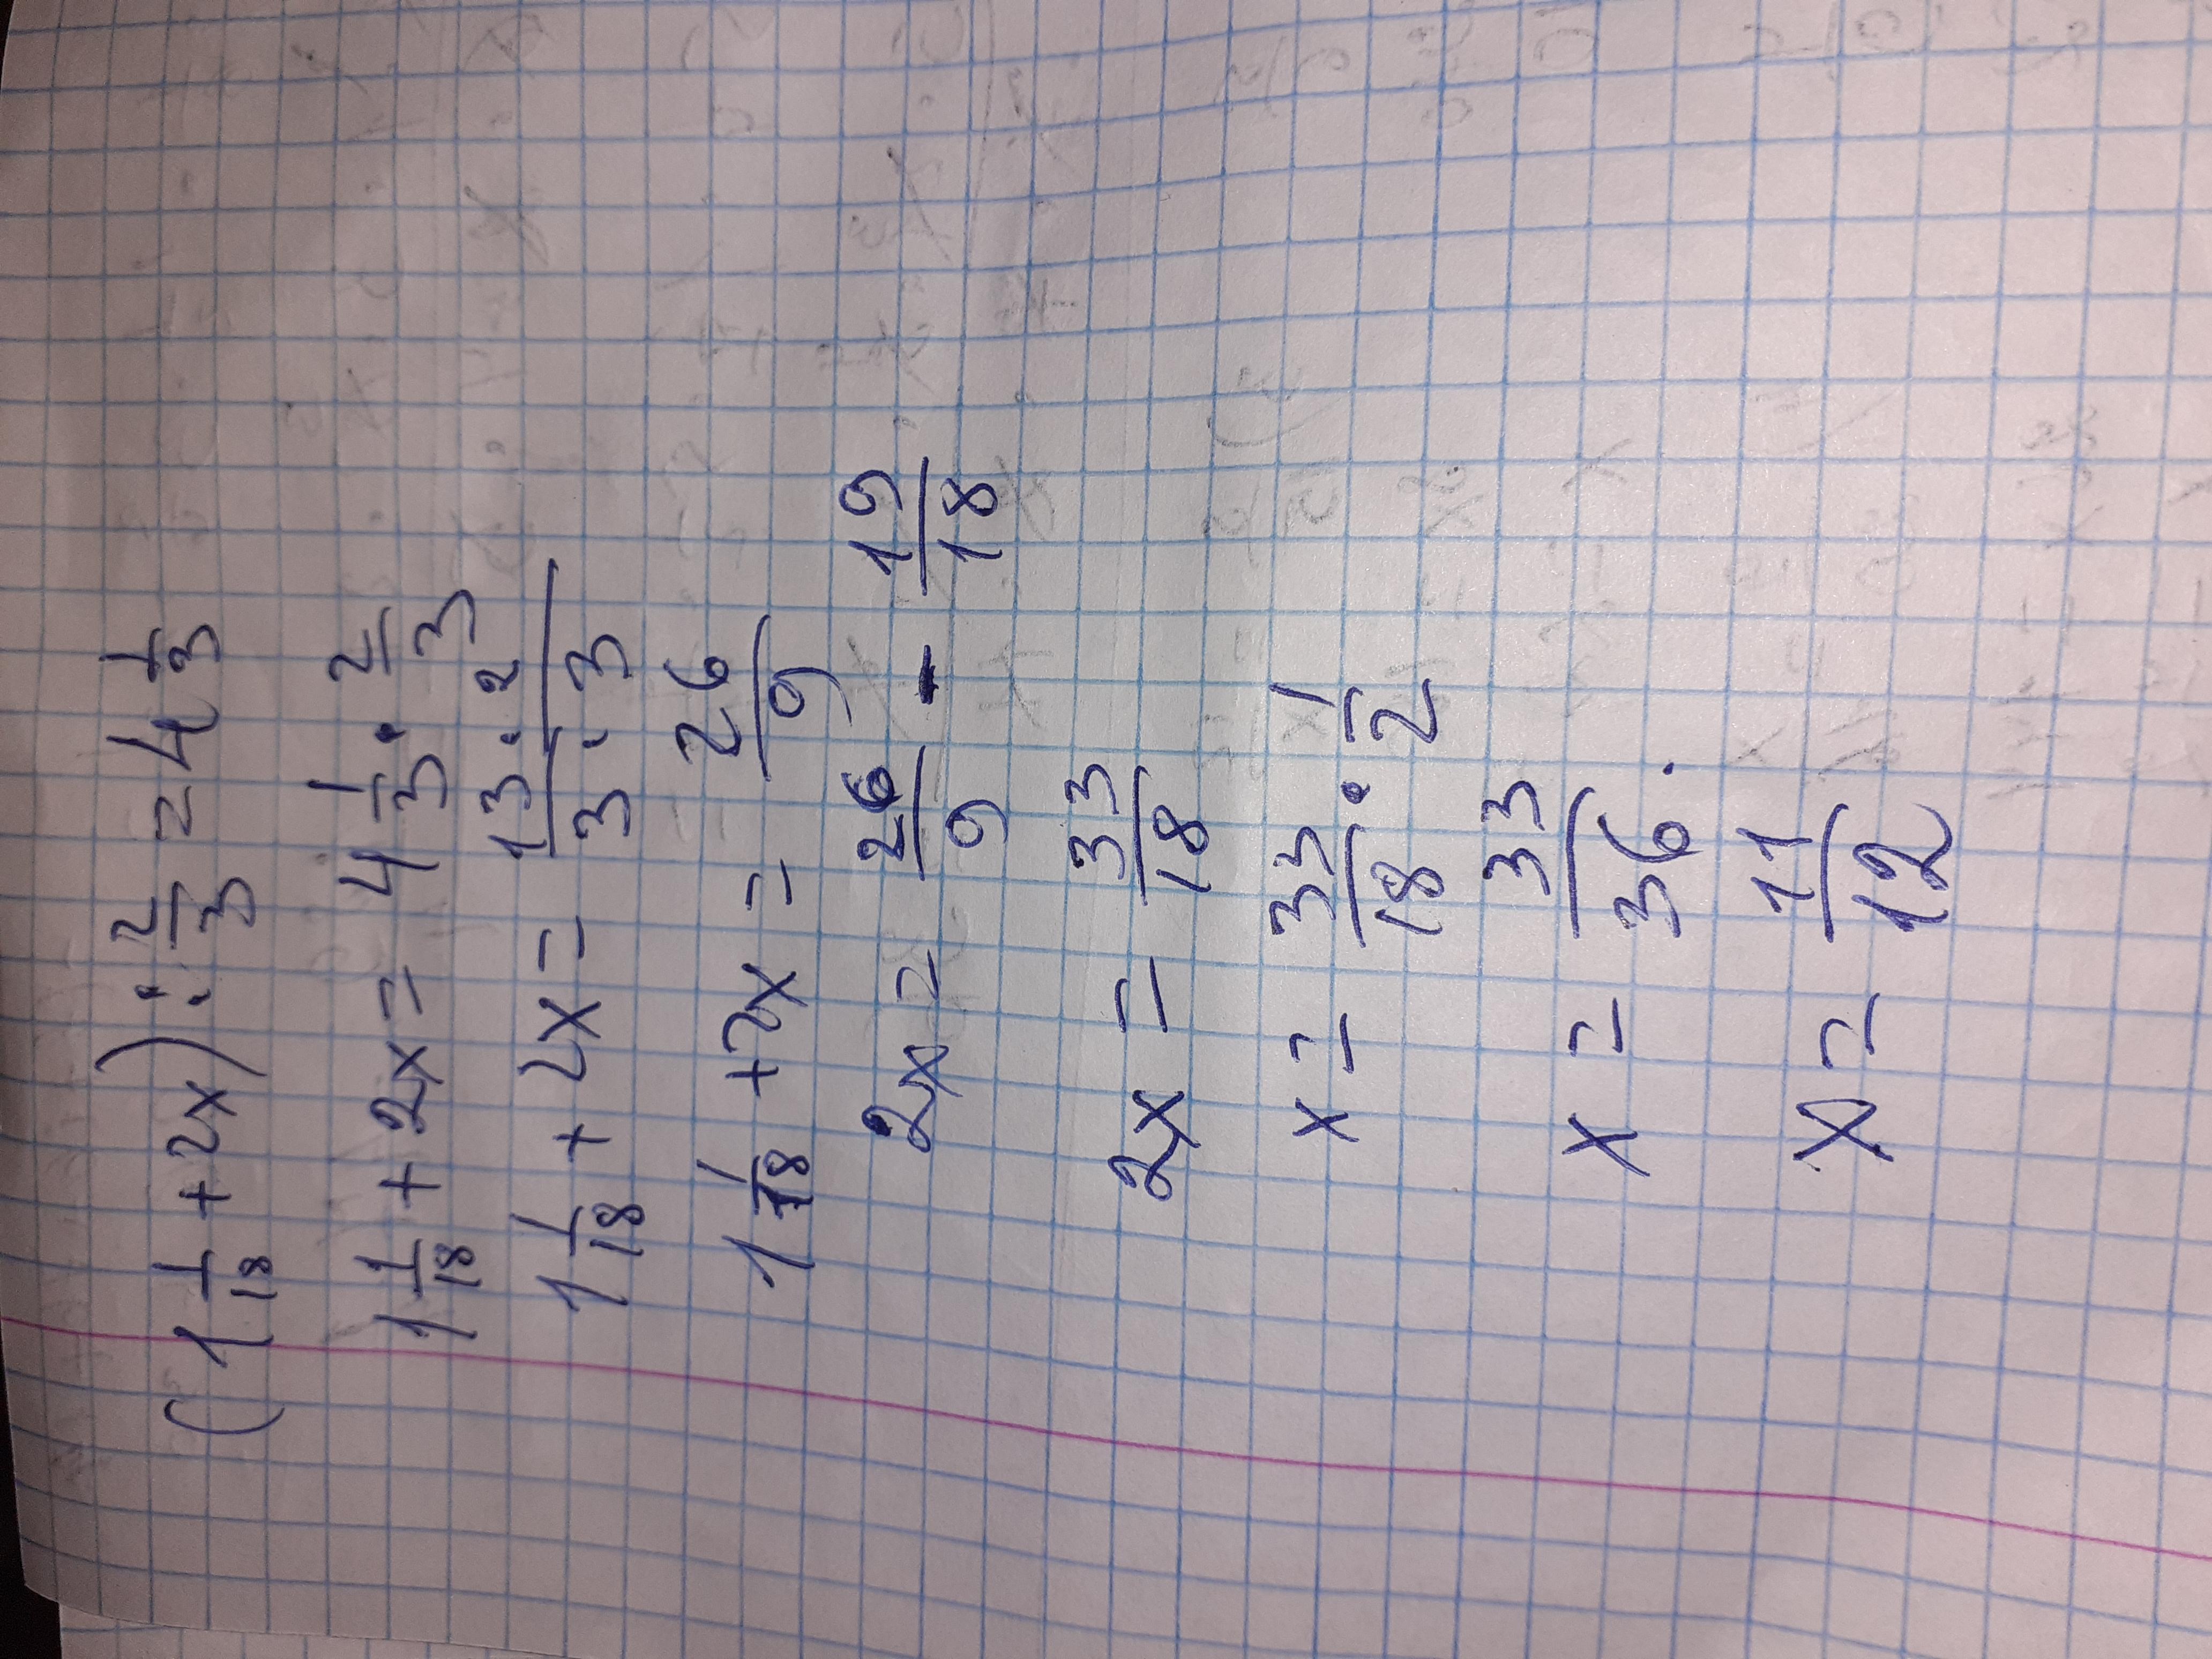 (1 1/18 + 2x) : 2/3 = 4 1/3
1 1/18 + 2x = 4 1/3 · 2/3
1 1/18 + 2x = 13 · 2 / 3 · 3
1 1/18 + 2x = 26/9
2x = 26/9 - 19/18
2x = 33/18
x = 33/18 · 1/2
x = 33/36 .
x = 11/12